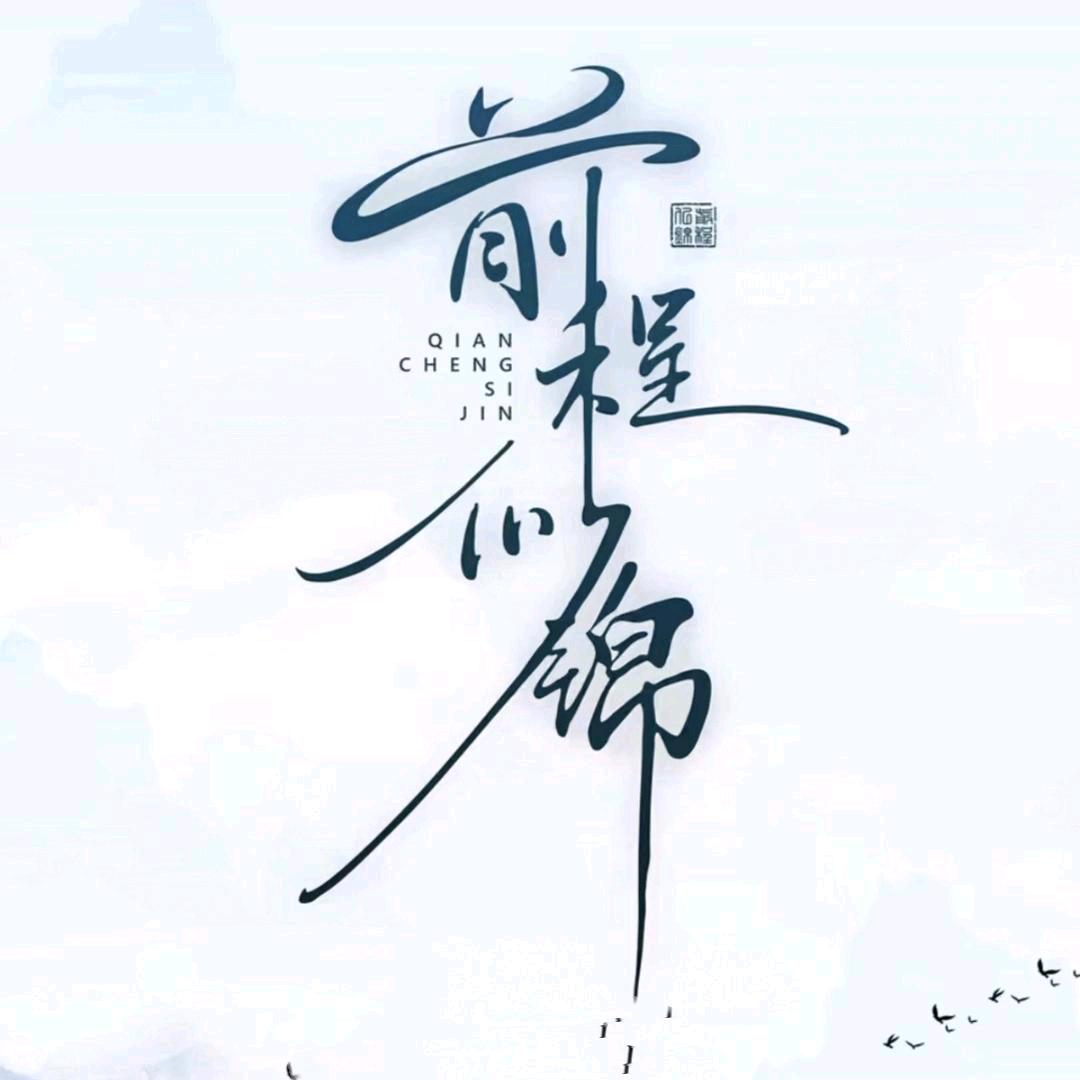 前程似锦
QIAN
CHENG
SI
JIN
前程
似錦